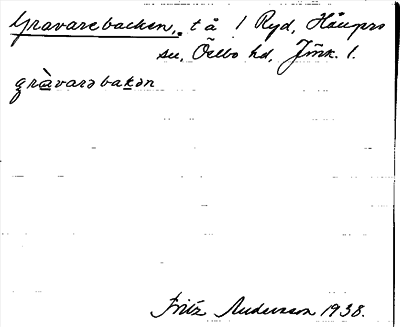 Gravarebacken, t å 1 Ryd, Hånger
sn, Östbo hd, Jönk. l.
gràvarəbakən
Fritz Andersson 1938.